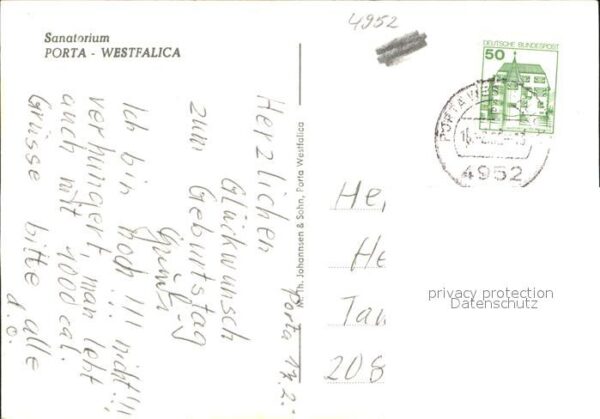 Sanatorium
PORTA - WESTFALICA
4952
DEUTSCHE BUNDESPOST
50
PORTA
4952
Th. Johannsen & Sohn, Porta Westfalica
Porta 17.2.
Herzlichen
Glückwunsch
zum Geburtstag
Ich bin noch!!! nicht!!!
verhungert, man lebt
auch mit 1000 cal.
Grüsse bitte alle
d. O.
He
He
Tan
208
privacy protection
Datenschutz